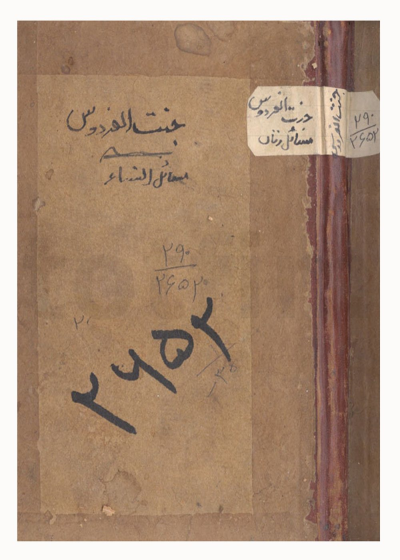 جنت الفردوس
مسائل النساء
۲۹۰
۲۶۵۲
۲۰
۲۶۵۲
جنت الفردوس
مسائل زنان
جنت الفردوس
۲۹۰
۲۶۵۲